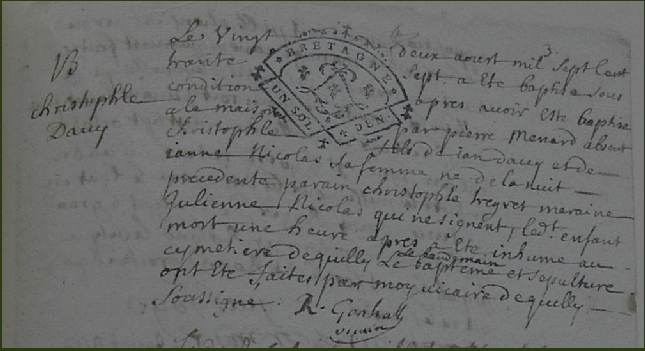 VB
christophle
Dauy
BRETAGNE
UN SOL
DEN
Le Vingt deux aoust mil sept cent
trante sept a Ete baptise sous
condition apres avoir este baptise
a la maison par pierre Menard absent
Christophle fils de ian dauy et de
ianne Nicolas sa femme ne de la nuit
precedente parain christophle hegret maraine
Julienne Nicolas qui ne signent, led. enfant
mort une heure apres a Ete inhume au
cymetiere dequilly Le landemain Le baptême et sepulture
ont Ete faites par moy vicaire dequilly
Soussigne. R. Gonhay
vicaire